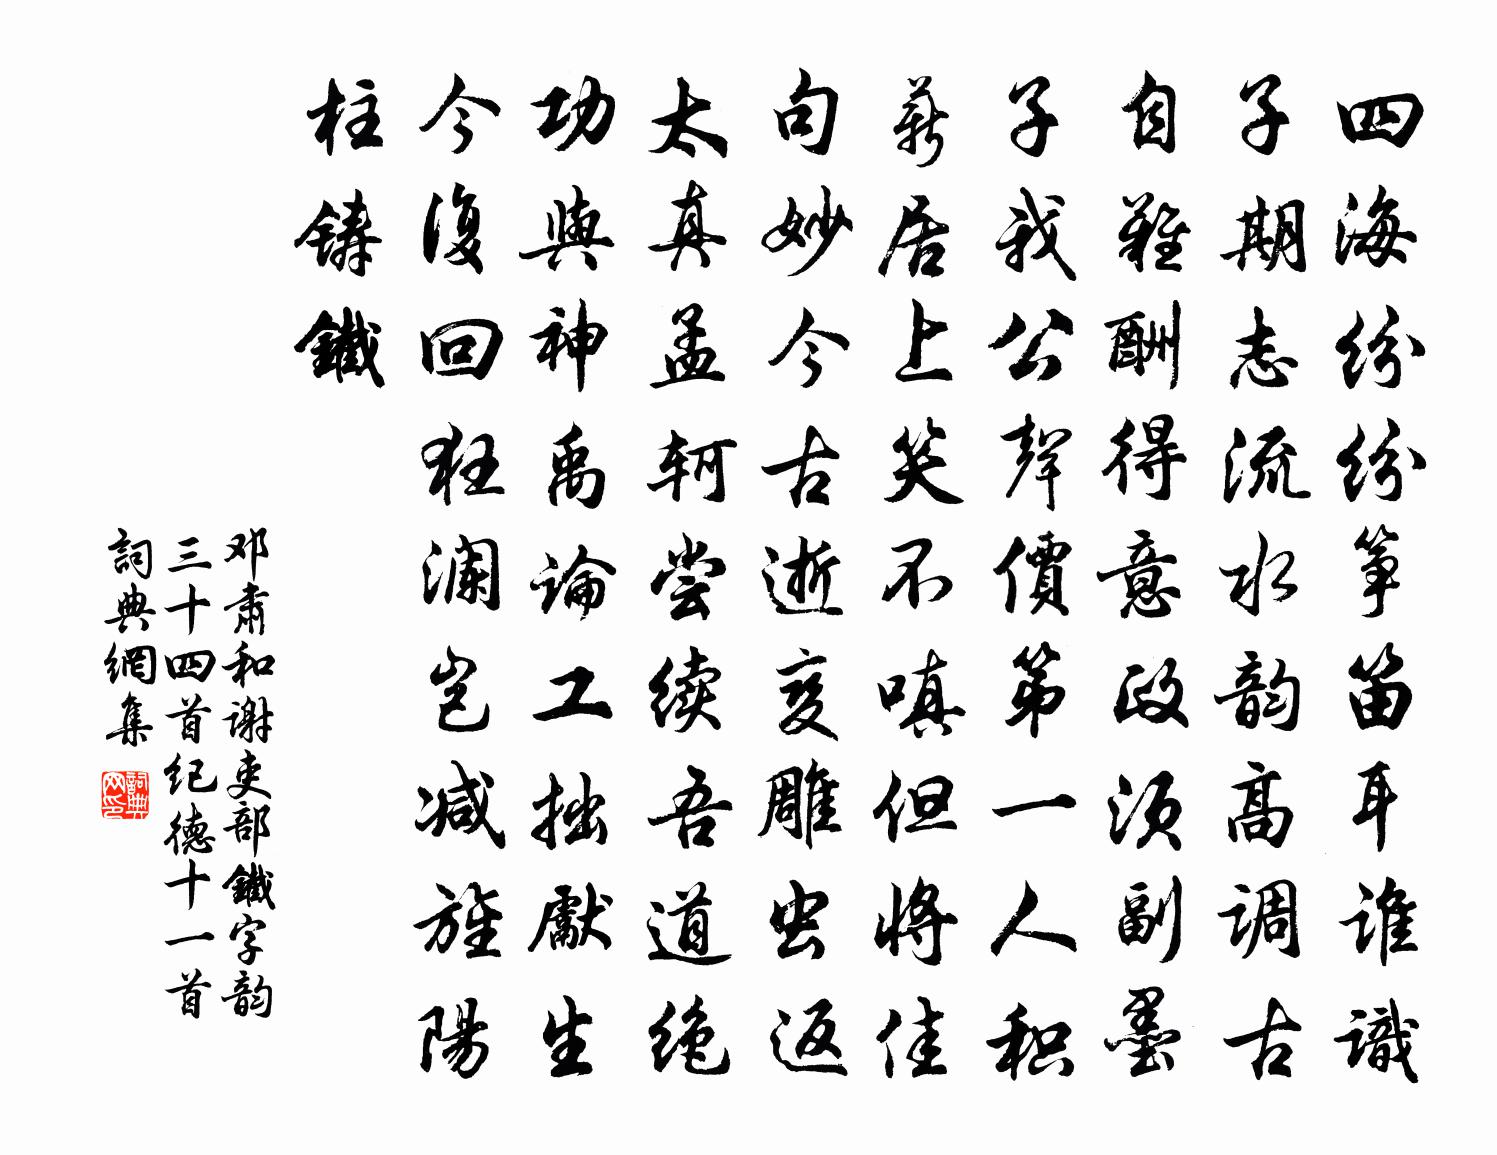 四海纷纷筝笛耳谁識
子期志流水韵高调古
自難酬得意政须副墨
子我公聲價第一人积
薪居上笑不嗔但将佳
句妙今古逝变雕虫返
太真孟轲尝续吾道绝
功與神禹論工拙獻生
今復回狂澜岂减旌陽
柱鑄鐵
邓肃和谢吏部鐵字韵
三十四首纪德十一首
詞典網集
詞典
网印